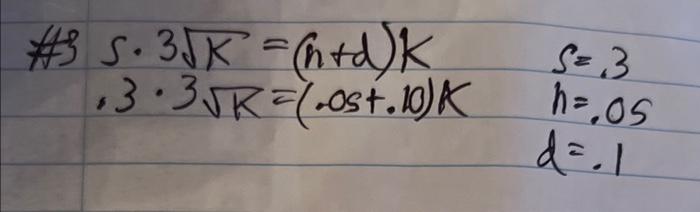 #3 s · 3√K = (n+d)K
.3 · 3√K = (.05+.10)K
s = .3
n = .05
d = .1